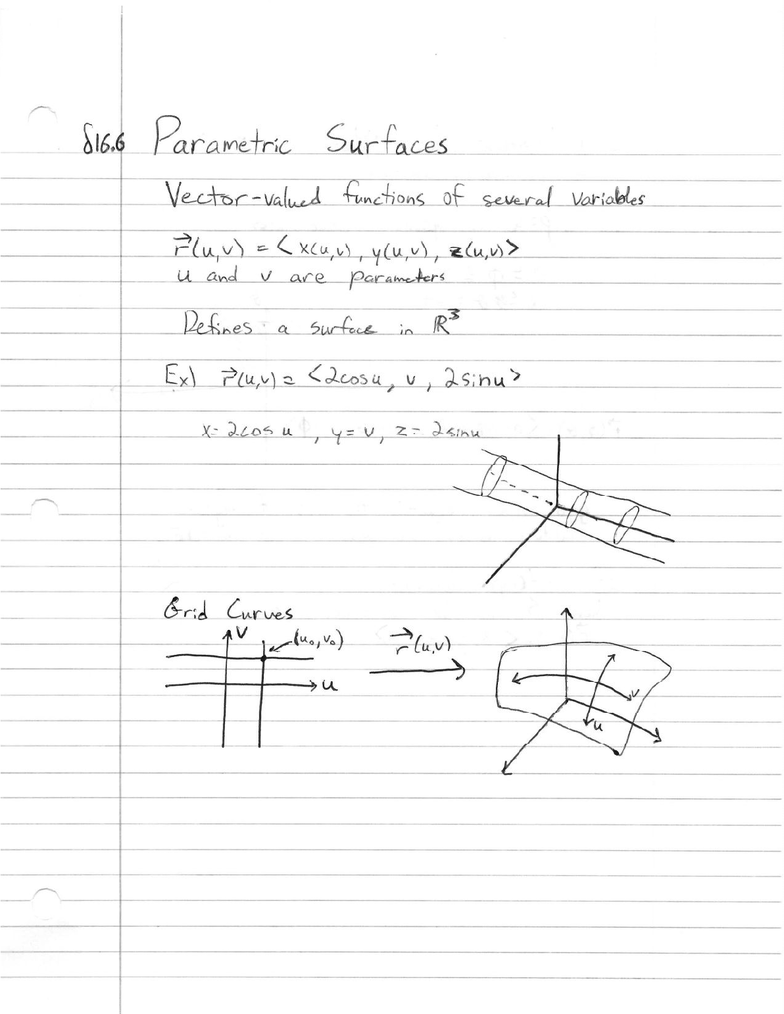 §16.6 Parametric Surfaces
Vector-valued functions of several variables
r⃗(u,v) = <x(u,v), y(u,v), z(u,v)>
u and v are parameters
Defines a surface in ℝ³
Ex) r⃗(u,v) = <2cosu, v, 2sinu>
x=2cosu, y=v, z=2sinu
Grid Curves
v
(u₀,v₀)
r⃗(u,v)
u
v
u